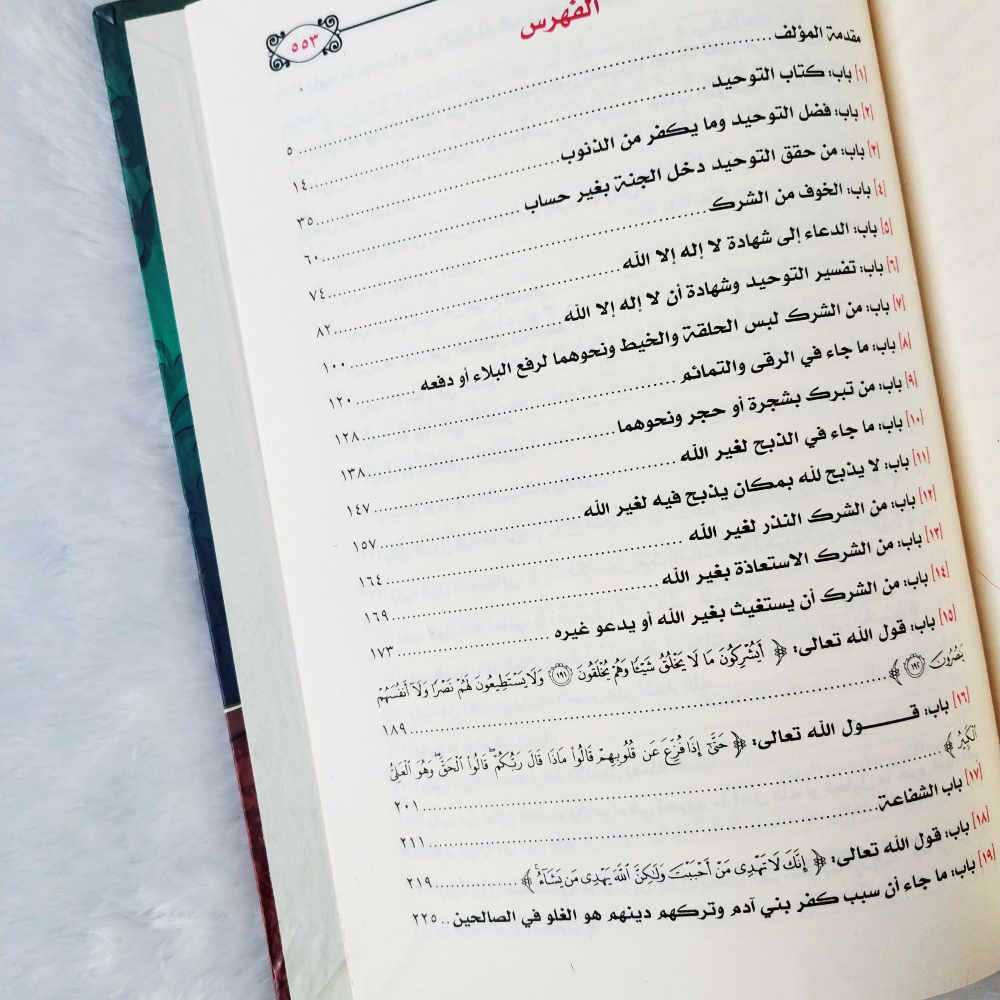 ٥٥٣
الفهرس
مقدمة المؤلف ٥
[١] باب: كتاب التوحيد ١٤
[٢] باب: فضل التوحيد وما يكفر من الذنوب ٣٥
[٣] باب: من حقق التوحيد دخل الجنة بغير حساب ٦٠
[٤] باب: الخوف من الشرك ٧٤
[٥] باب: الدعاء إلى شهادة لا إله إلا الله ٨٢
[٦] باب: تفسير التوحيد وشهادة أن لا إله إلا الله ١٠٠
[٧] باب: من الشرك لبس الحلقة والخيط ونحوهما لرفع البلاء أو دفعه ١٢٠
[٨] باب: ما جاء في الرقى والتمائم ١٢٨
[٩] باب: من تبرك بشجرة أو حجر ونحوهما ١٣٨
[١٠] باب: ما جاء في الذبح لغير الله ١٤٧
[١١] باب: لا يذبح لله بمكان يذبح فيه لغير الله ١٥٧
[١٢] باب: من الشرك النذر لغير الله ١٦٤
[١٣] باب: من الشرك الاستعاذة بغير الله ١٦٩
[١٤] باب: من الشرك أن يستغيث بغير الله أو يدعو غيره ١٧٣
[١٥] باب: قول الله تعالى: ﴿ أَيُشْرِكُونَ مَا لَا يَخْلُقُ شَيْئًا وَهُمْ يُخْلَقُونَ ١٩١ وَلَا يَسْتَطِيعُونَ لَهُمْ نَصْرًا وَلَآ أَنفُسَهُمْ
يَنصُرُونَ ١٩٢ ﴾ ١٨٩
[١٦] باب: قـــول الله تعالى: ﴿ حَتَّىٰٓ إِذَا فُزِّعَ عَن قُلُوبِهِمْ قَالُوا۟ مَاذَا قَالَ رَبُّكُمْ ۖ قَالُوا۟ ٱلْحَقَّ ۖ وَهُوَ ٱلْعَلِىُّ
ٱلْكَبِيرُ ﴾ ٢٠١
[١٧] باب الشفاعة ٢١١
[١٨] باب: قول الله تعالى: ﴿ إِنَّكَ لَا تَهْدِى مَنْ أَحْبَبْتَ وَلَٰكِنَّ ٱللَّهَ يَهْدِى مَن يَشَآءُ ﴾ ٢١٩
[١٩] باب: ما جاء أن سبب كفر بني آدم وتركهم دينهم هو الغلو في الصالحين ٢٢٥